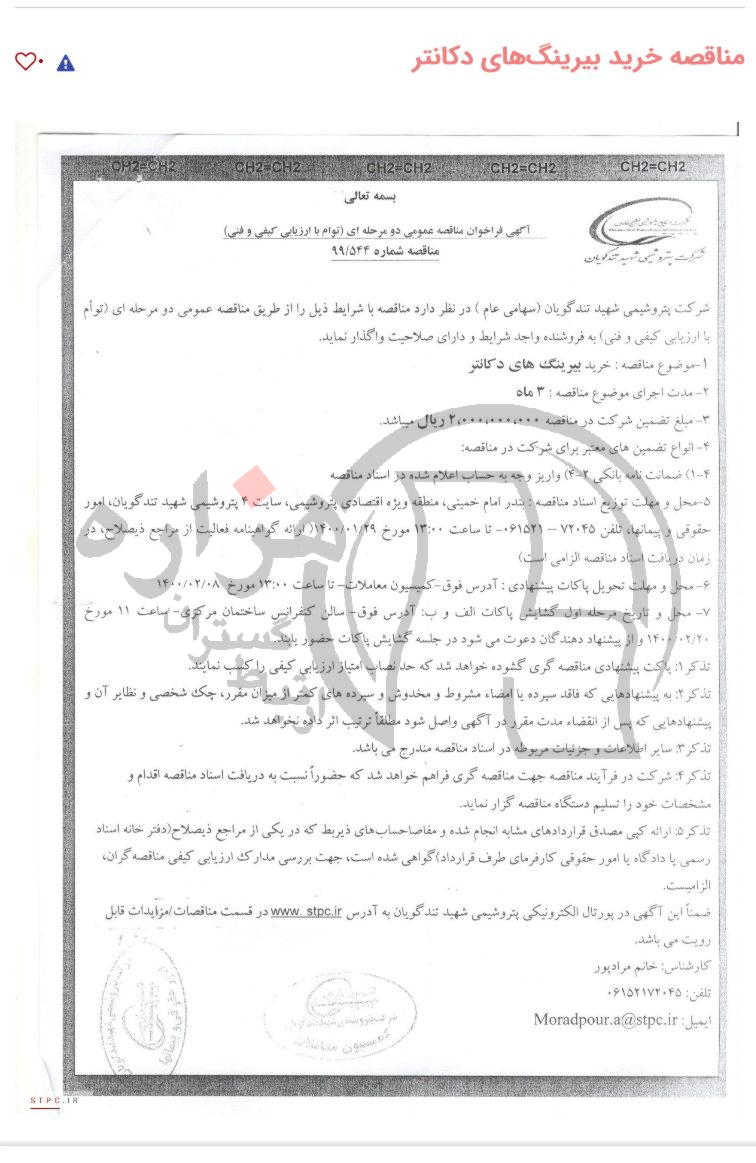 مناقصه خرید بیرینگ‌های دکانتر
CH2=CH2 CH2=CH2 CH2=CH2 CH2=CH2 CH2=CH2
بسمه تعالی
آگهی فراخوان مناقصه عمومی دو مرحله ای (توام با ارزیابی کیفی و فنی)
مناقصه شماره ۹۹/۵۴۴
شرکت پتروشیمی شهید تندگویان
شرکت پتروشیمی شهید تندگویان (سهامی عام ) در نظر دارد مناقصه با شرایط ذیل را از طریق مناقصه عمومی دو مرحله ای (توأم
با ارزیابی کیفی و فنی) به فروشنده واجد شرایط و دارای صلاحیت واگذار نماید.
۱-موضوع مناقصه : خرید بیرینگ های دکانتر
۲- مدت اجرای موضوع مناقصه : ۳ ماه
۳- مبلغ تضمین شرکت در مناقصه ۲،۰۰۰،۰۰۰،۰۰۰ ریال میباشد.
۴- انواع تضمین های معتبر برای شرکت در مناقصه:
۴-۱) ضمانت نامه بانکی ۴-۲) واریز وجه به حساب اعلام شده در اسناد مناقصه
۵-محل و مهلت توزیع اسناد مناقصه : بندر امام خمینی، منطقه ویژه اقتصادی پتروشیمی، سایت ۴ پتروشیمی شهید تندگویان، امور
حقوقی و پیمانها، تلفن ۷۲۰۴۵ – ۰۶۱۵۲۱- تا ساعت ۱۳:۰۰ مورخ ۱۴۰۰/۰۱/۲۹(ارائه گواهینامه فعالیت از مراجع ذیصلاح، در
زمان دریافت اسناد مناقصه الزامی است)
۶- محل و مهلت تحویل پاکات پیشنهادی : آدرس فوق-کمیسیون معاملات- تا ساعت ۱۳:۰۰ مورخ ۱۴۰۰/۰۲/۰۸
۷- محل و تاریخ مرحله اول گشایش پاکات الف و ب: آدرس فوق- سالن کنفرانس ساختمان مرکزی- ساعت ۱۱ مورخ
۱۴۰۰/۰۲/۲۰ و از پیشنهاد دهندگان دعوت می شود در جلسه گشایش پاکات حضور یابند.
تذکر۱: پاکت پیشنهادی مناقصه گری گشوده خواهد شد که حد نصاب امتیاز ارزیابی کیفی را کسب نمایند.
تذکر۲: به پیشنهادهایی که فاقد سپرده یا امضاء مشروط و مخدوش و سپرده های کمتر از میزان مقرر، چک شخصی و نظایر آن و
پیشنهادهایی که پس از انقضاء مدت مقرر در آگهی واصل شود مطلقاً ترتیب اثر داده نخواهد شد.
تذکر۳: سایر اطلاعات و جزئیات مربوطه در اسناد مناقصه مندرج می باشد.
تذکر۴: شرکت در فرآیند مناقصه جهت مناقصه گری فراهم خواهد شد که حضوراً نسبت به دریافت اسناد مناقصه اقدام و
مشخصات خود را تسلیم دستگاه مناقصه گزار نماید.
تذکر۵: ارائه کپی مصدق قراردادهای مشابه انجام شده و مفاصاحساب‌های ذیربط که در یکی از مراجع ذیصلاح(دفتر خانه اسناد
رسمی یا دادگاه یا امور حقوقی کارفرمای طرف قرارداد)گواهی شده است، جهت بررسی مدارک ارزیابی کیفی مناقصه‌گران،
الزامیست.
ضمناً این آگهی در پورتال الکترونیکی پتروشیمی شهید تندگویان به آدرس www. stpc.ir در قسمت مناقصات/مزایدات قابل
رویت می باشد.
کارشناس: خانم مرادپور
تلفن: ۰۶۱۵۲۱۷۲۰۴۵
ایمیل: Moradpour.a@stpc.ir
هزاره
گستران
ارتباط
کمیسیون معاملات
STPC.IR